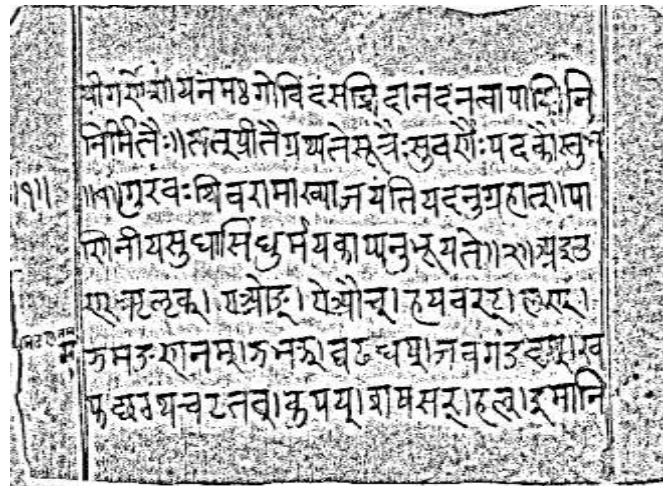 श्रीगणेशाय नमः गोविंदं सच्चिदानंदं नत्वा पाणिनि
निर्मितैः॥ तत्प्रीतै ग्रथ्यते सूत्रैः सुवर्णैः पदकौस्तुभ
॥१॥ ॥१॥ गुरवः शिवरामाख्या जयंति यदनुग्रहात्॥ पा
णिनीयसुधासिंधुर्मयकाप्यनुभूयते॥२॥ अइउ
ण् ऋलृक्। एओङ्। ऐऔच्। हयवरट्। लण्।
ञमङणनम्। झभञ् घढधष्। जबगडदश्। ख
फछठथचटतव्। कपय्। शषसर्। हल्। इमानि